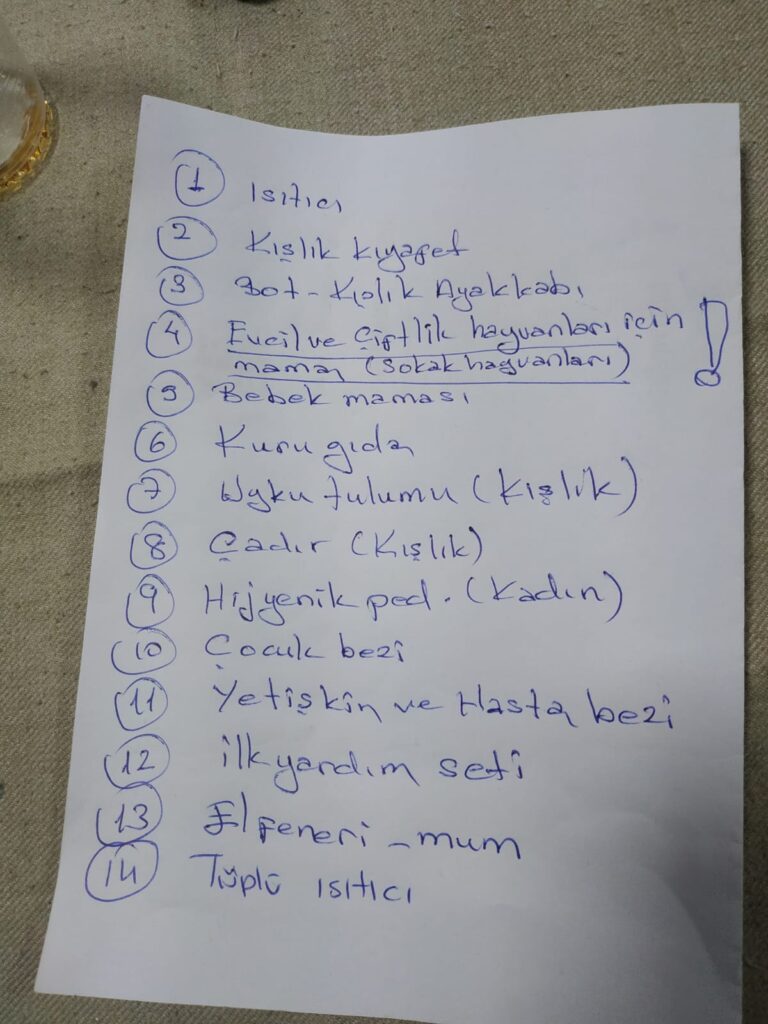 1 Isıtıcı
2 Kışlık kıyafet
3 Bot - Kışlık Ayakkabı
4 Evcil ve Çiftlik hayvanları için !
mama (Sokak hayvanları)
5 Bebek maması
6 Kuru gıda
7 Uyku tulumu (Kışlık)
8 Çadır (Kışlık)
9 Hijyenik ped. (Kadın)
10 Çocuk bezi
11 Yetişkin ve Hasta bezi
12 İlkyardım seti
13 El feneri - mum
14 Tüplü ısıtıcı